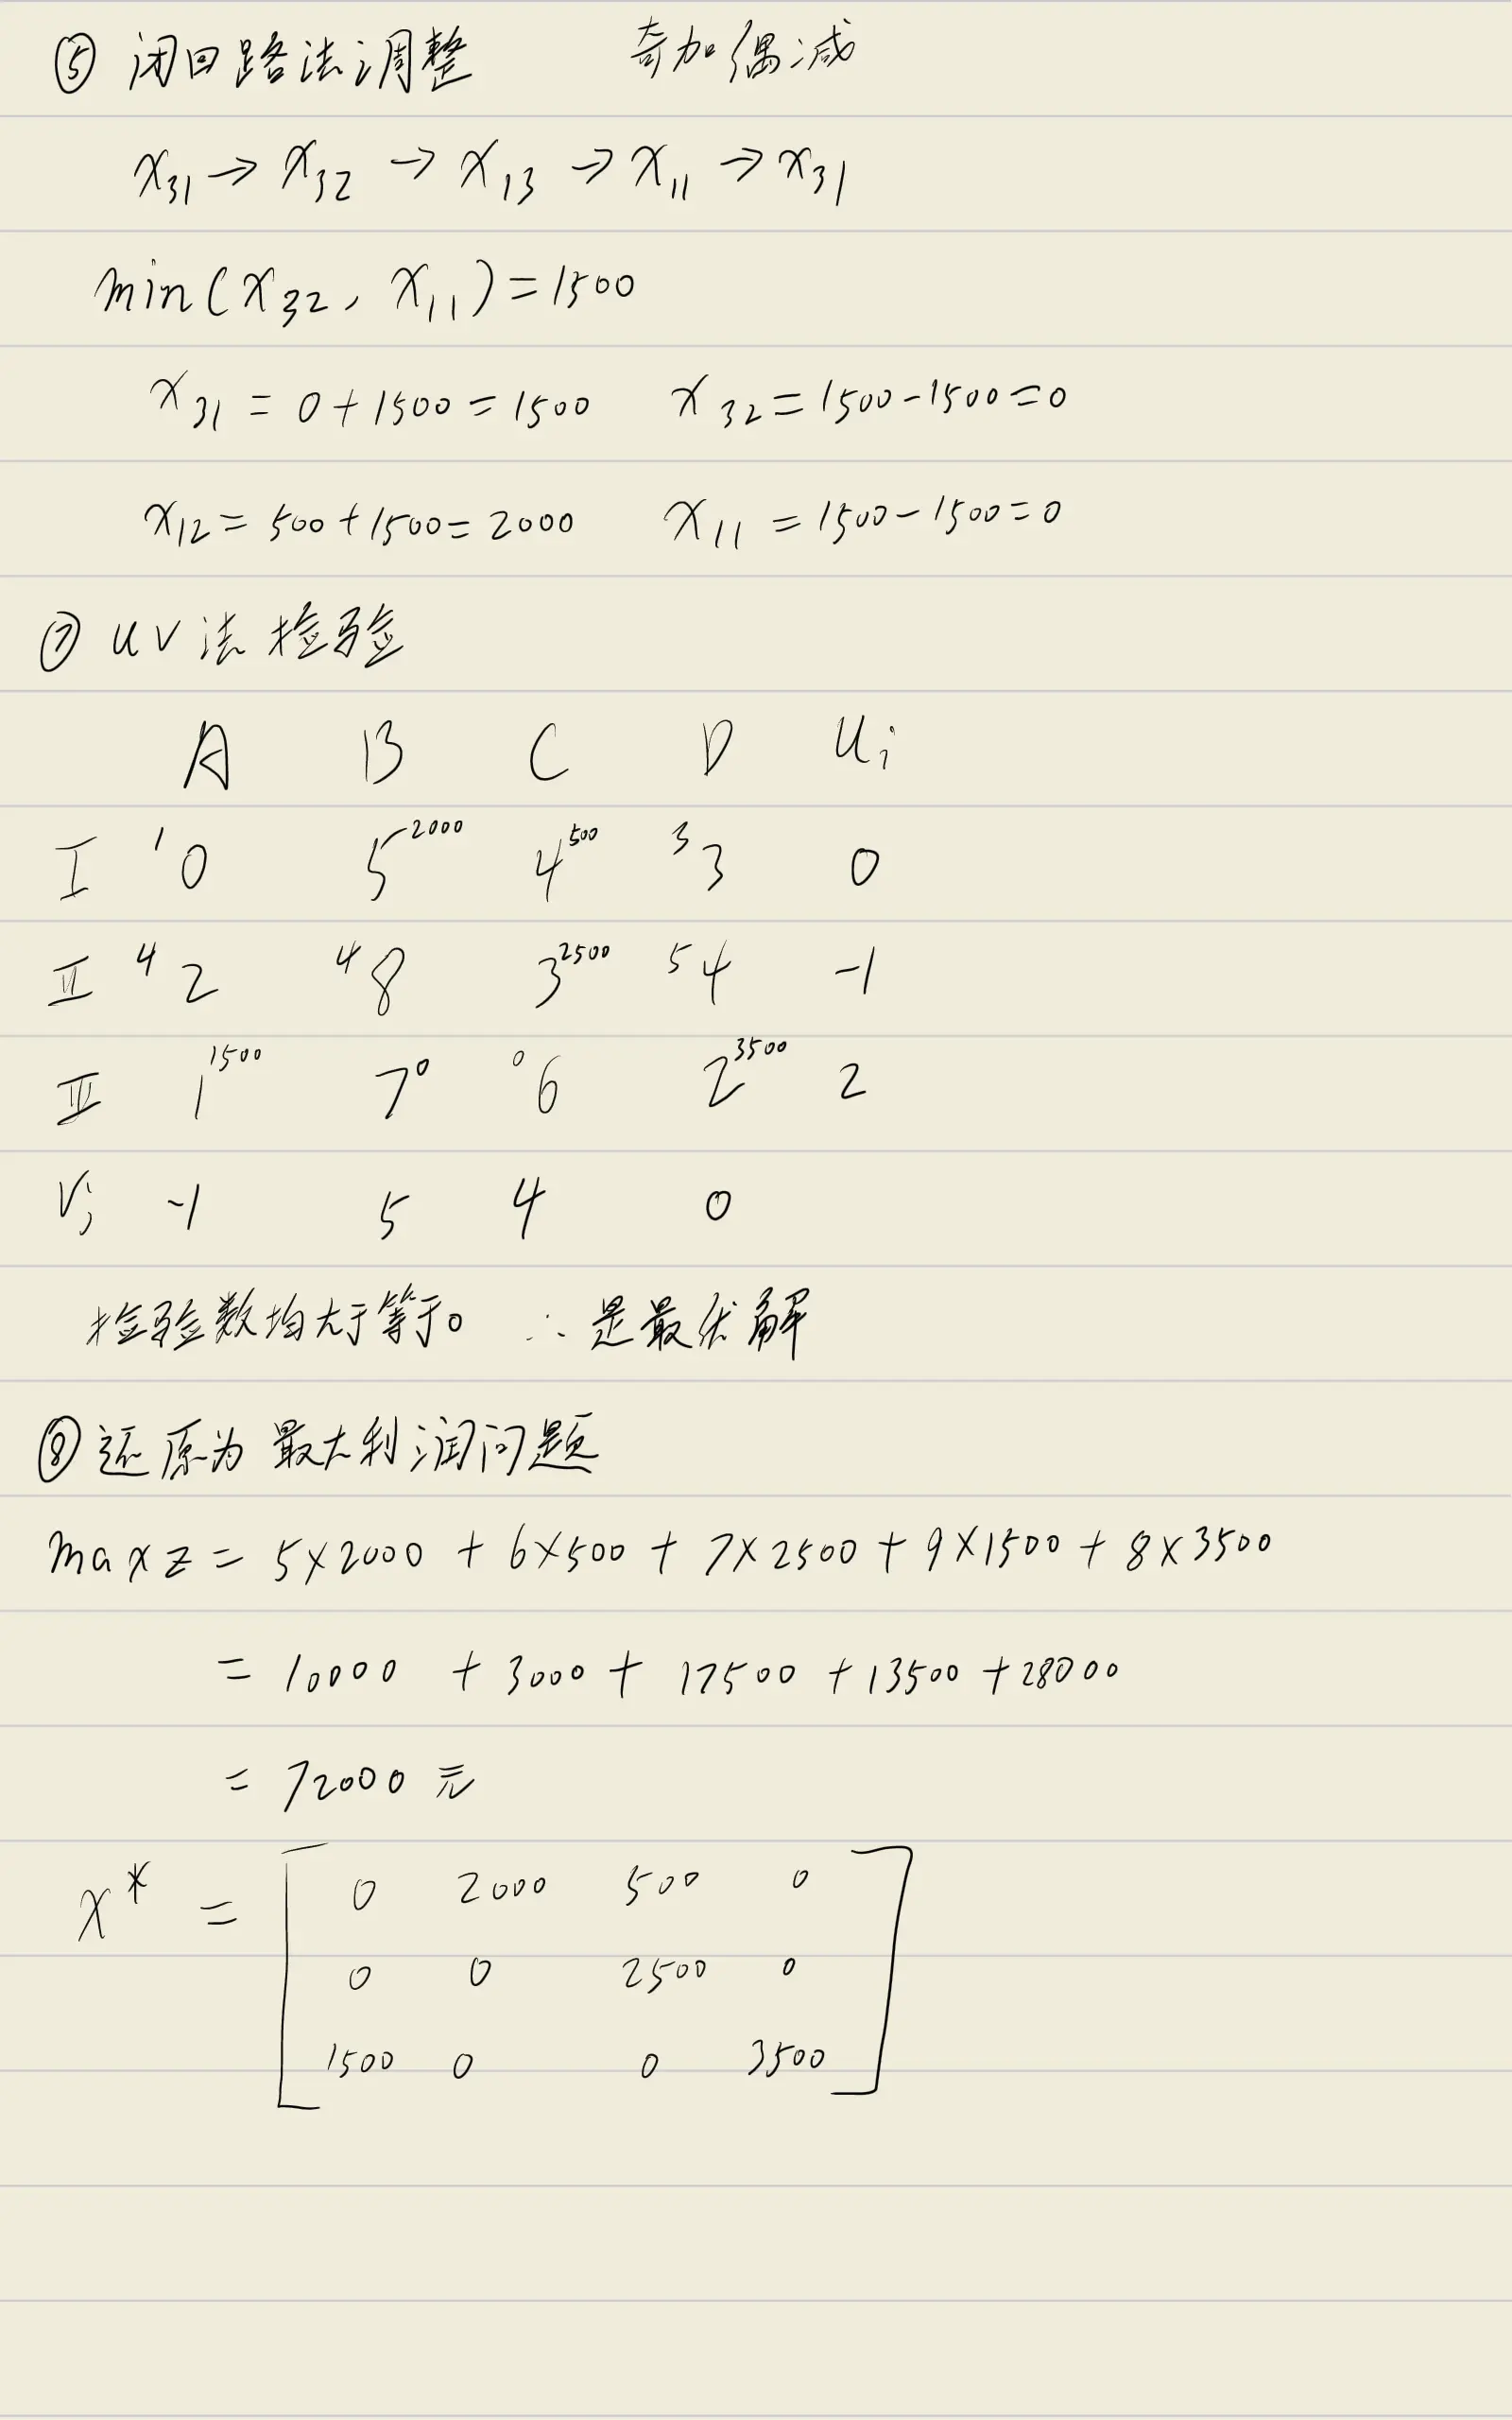 ⑤ 闭回路法调整 奇加偶减
x₃₁ → x₃₂ → x₁₃ → x₁₁ → x₃₁
min(x₃₂, x₁₁) = 1500
x₃₁ = 0 + 1500 = 1500 x₃₂ = 1500 - 1500 = 0
x₁₂ = 500 + 1500 = 2000 x₁₁ = 1500 - 1500 = 0
⑦ uv法检验
A B C D Ui
I ¹0 5²⁰⁰⁰ 4⁵⁰⁰ ³3 0
II ⁴2 ⁴8 3²⁵⁰⁰ ⁵4 -1
III 1¹⁵⁰⁰ 7⁰ ⁰6 2³⁵⁰⁰ 2
Vj -1 5 4 0
检验数均大于等于0 ∴是最优解
⑧ 还原为最大利润问题
max z = 5×2000 + 6×500 + 7×2500 + 9×1500 + 8×3500
= 10000 + 3000 + 17500 + 13500 + 28000
= 72000元
x* = [ 0 2000 500 0
0 0 2500 0
1500 0 0 3500 ]